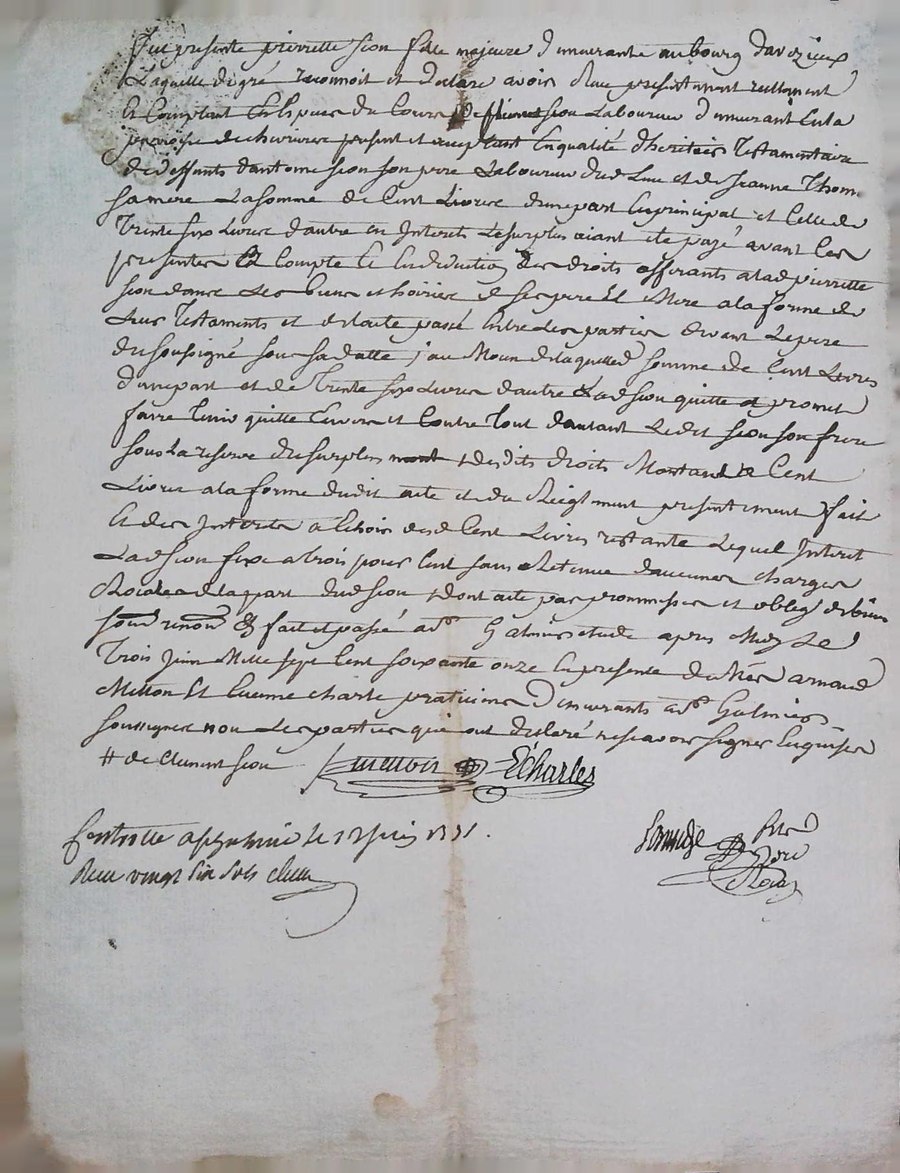 fut presente pierrette sion fille majeure demeurante au bourg daveizieux
Laquelle de gré reconnoit et declare avoir Reçu presentement reellement
Et Comptant En Especes du Cours de sion Laboureur demeurant En la
paroisse de chevrieres present et acceptant En qualité dheritier Testamentaire
de deffunts dantoine sion son pere Laboureur dud Lieu et de Jeanne Thom
sa mere La somme de Cent Livres dune part En principal et Celle de
Trente six Livres dautre en Interets Le surplus aiant ete payé avant Ces
presentes Et Compte Et En deduction des droits afferants a lad pierrette
sion dans Les biens et hoiries de ses pere Et Mere a la forme de
Leurs Testaments et de Lacte passé Entre Les parties devant Le pere
du soussigné sous sa datte j'au Moien de laquelle somme de Cent Livres
dune part et de Trente six Livres dautre Lad sion quitte et promet
faire Tenir quitte Envers et Contre Tout dautant Ledit sion son frere
sous La reserve du surplus desdits droits Montant a Cent
Livres a la forme dudit acte et du Reiglement presentement fait
Et des Interets a Echoir desd Cent Livres restants Lequel Interet
Lad sion fixe a trois pour Cent sans Retenue daucunes charges
Roiales de la part dud sion dont acte par prommesses et oblig de biens
soum renon &ca fait et passé a st Galmier etude apres Midy Le
Trois Juin Mille sept Cent soixante onze En presence de Mes arnaud
Mitton Et Etienne charle praticiens demeurants a st Galmier
soussignes non Les parties qui ont declaré ne scavoir signer Enquises
# de Clement sion ECharles
Controlle a st galmier le 12 Juin 1771.
Recu vingt six sols